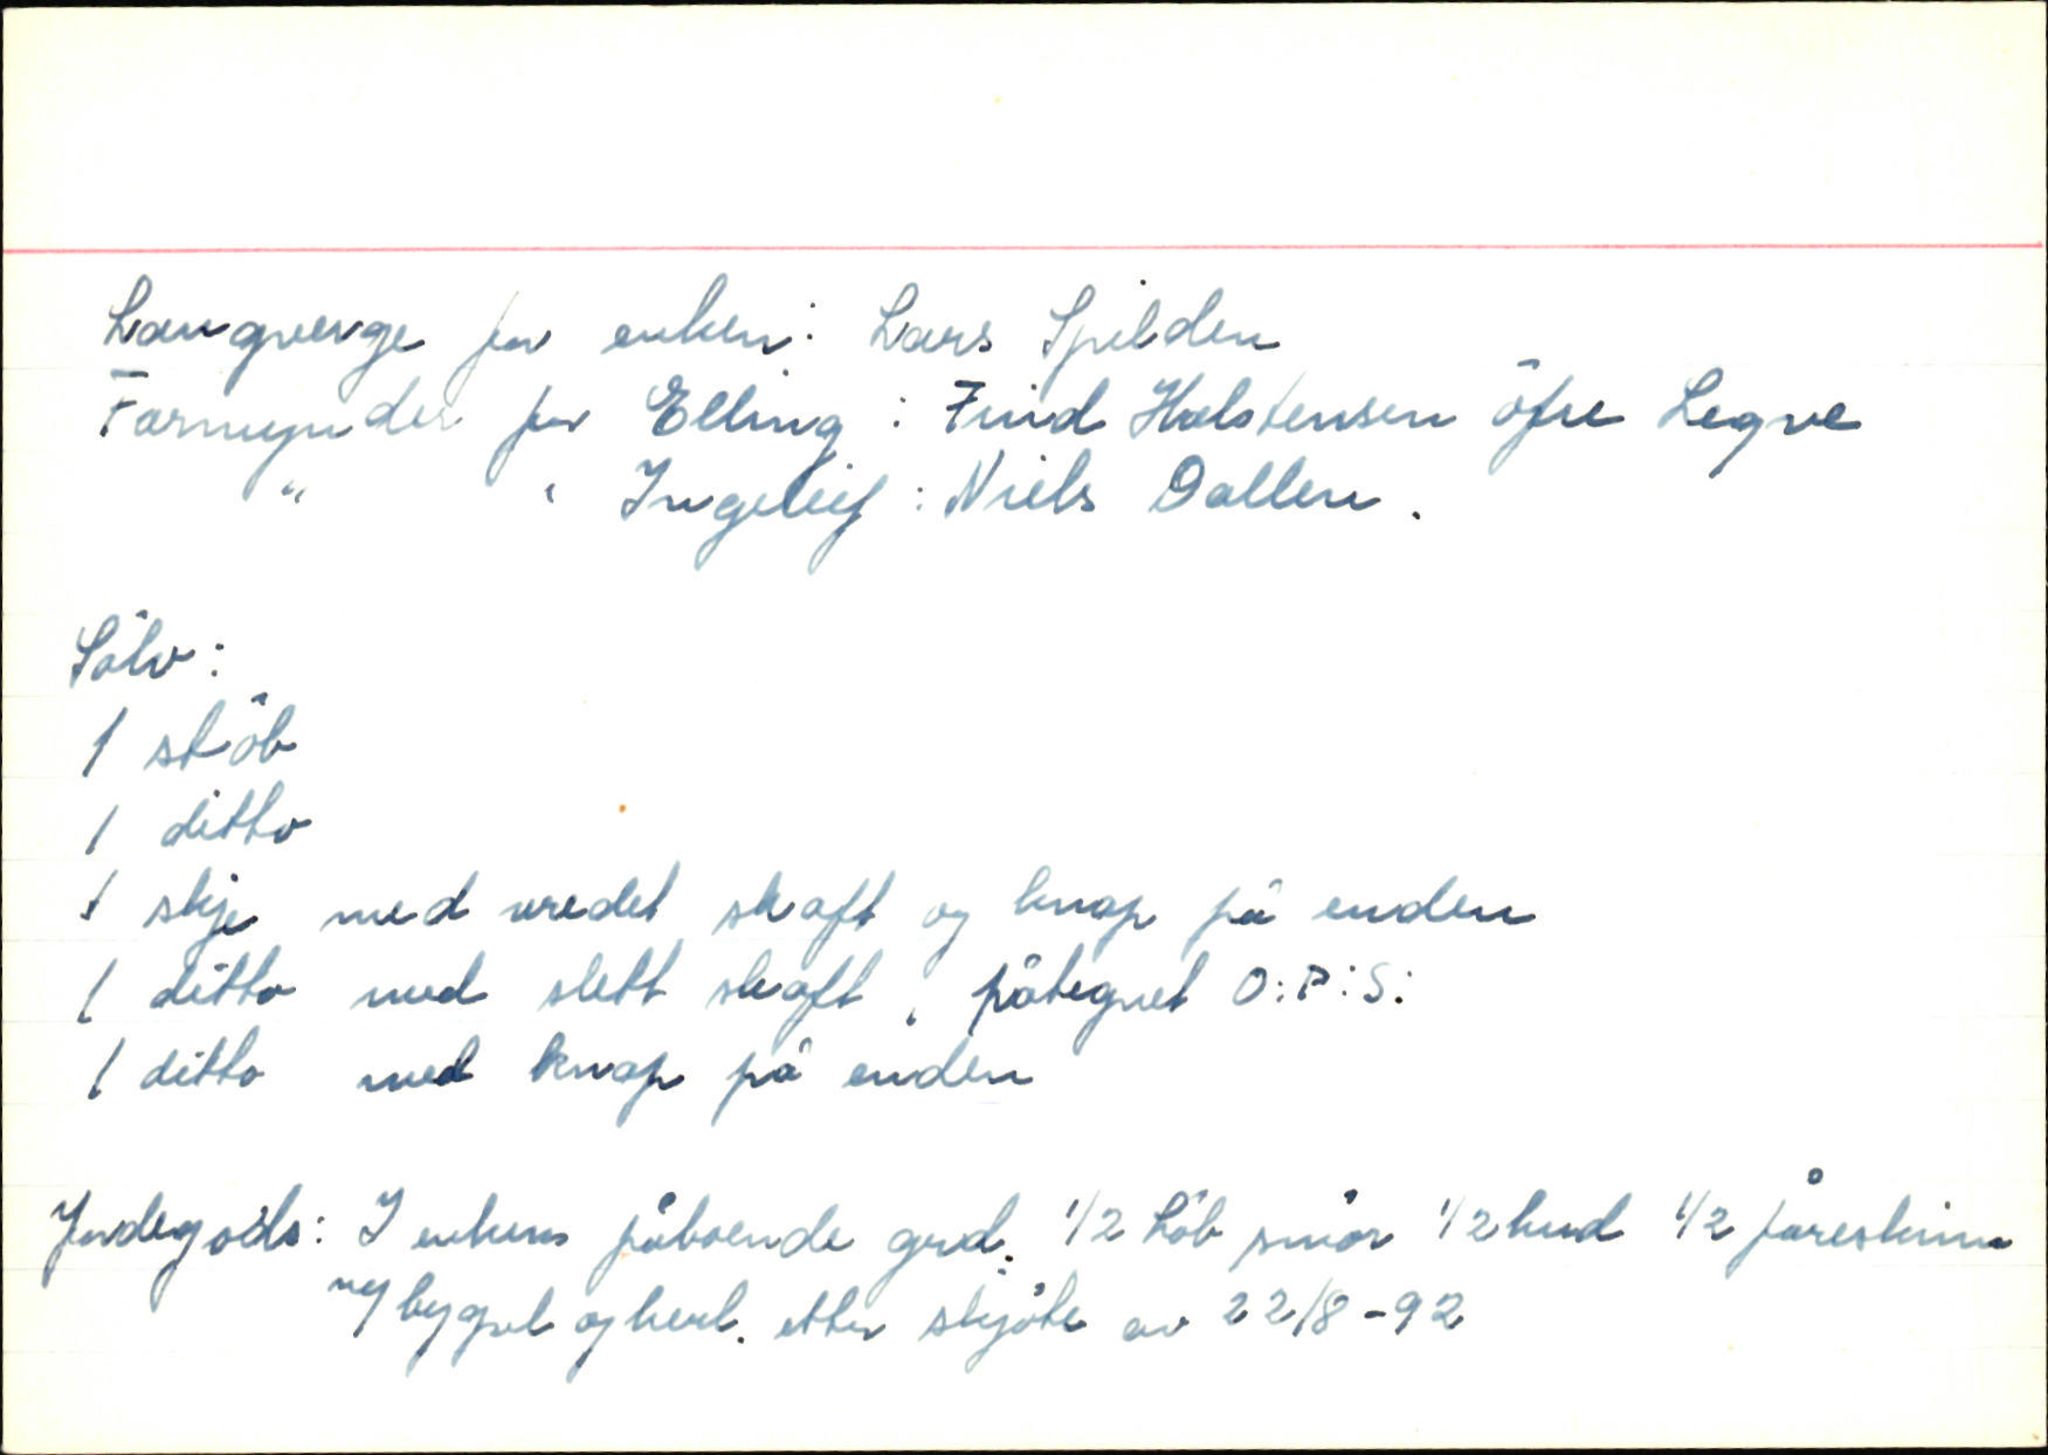 Laugverge for enken: Lars Spilden
Formynder for Elling : Find Holstensen öfre Legve
" " Ingeleif : Niels Dallen.
Sölv:
1 stöb
1 ditto
1 skje med vredet skaft og knap på enden
1 ditto med slett skaft, påtegnet O:P:S:
1 ditto med knap på enden
Jordegods: I enkens påboende grd. 1/2 Löb smör 1/2 hud 1/2 fåreskinn
m/ bygsel og herl. etter skjöte av 22/8-92